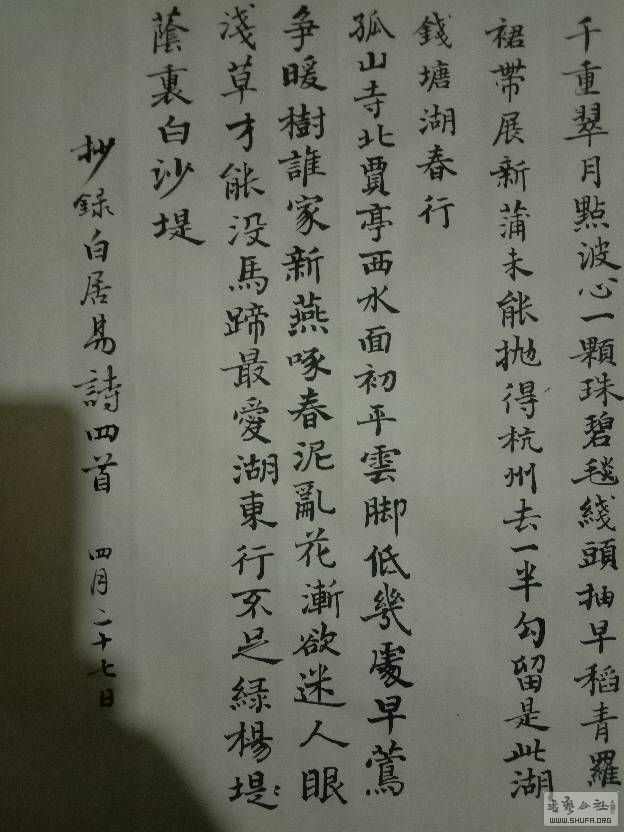 千重翠月點波心一顆珠碧毯綫頭抽早稻青羅
裙帶展新蒲未能抛得杭州去一半勾留是此湖
錢塘湖春行
孤山寺北賈亭西水面初平雲脚低幾處早鶯
争暖樹誰家新燕啄春泥亂花漸欲迷人眼
淺草才能没馬蹄最愛湖東行不足緑楊堤:
蔭裏白沙堤
抄録白居易詩四首 四月二十七日
WWW.SHUFA.ORG